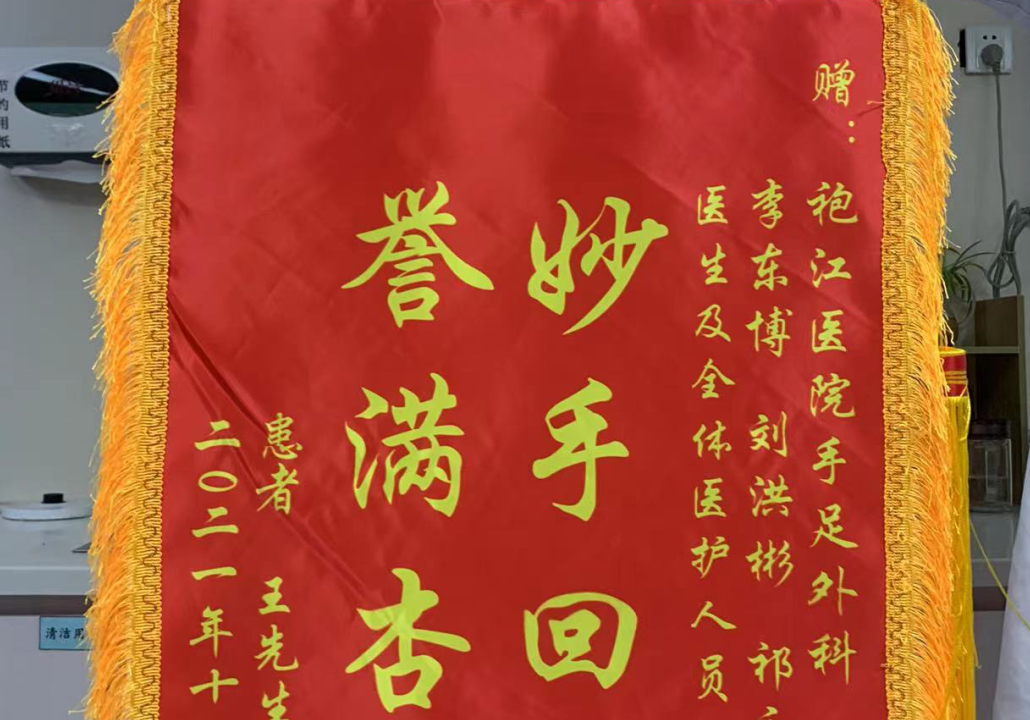 赠：
袍江医院手足外科
李东博 刘洪彬 祁
医生及全体医护人员
妙手回
誉满杏
患者 王先生
二〇二一年十
节
约
用
纸
清洁用